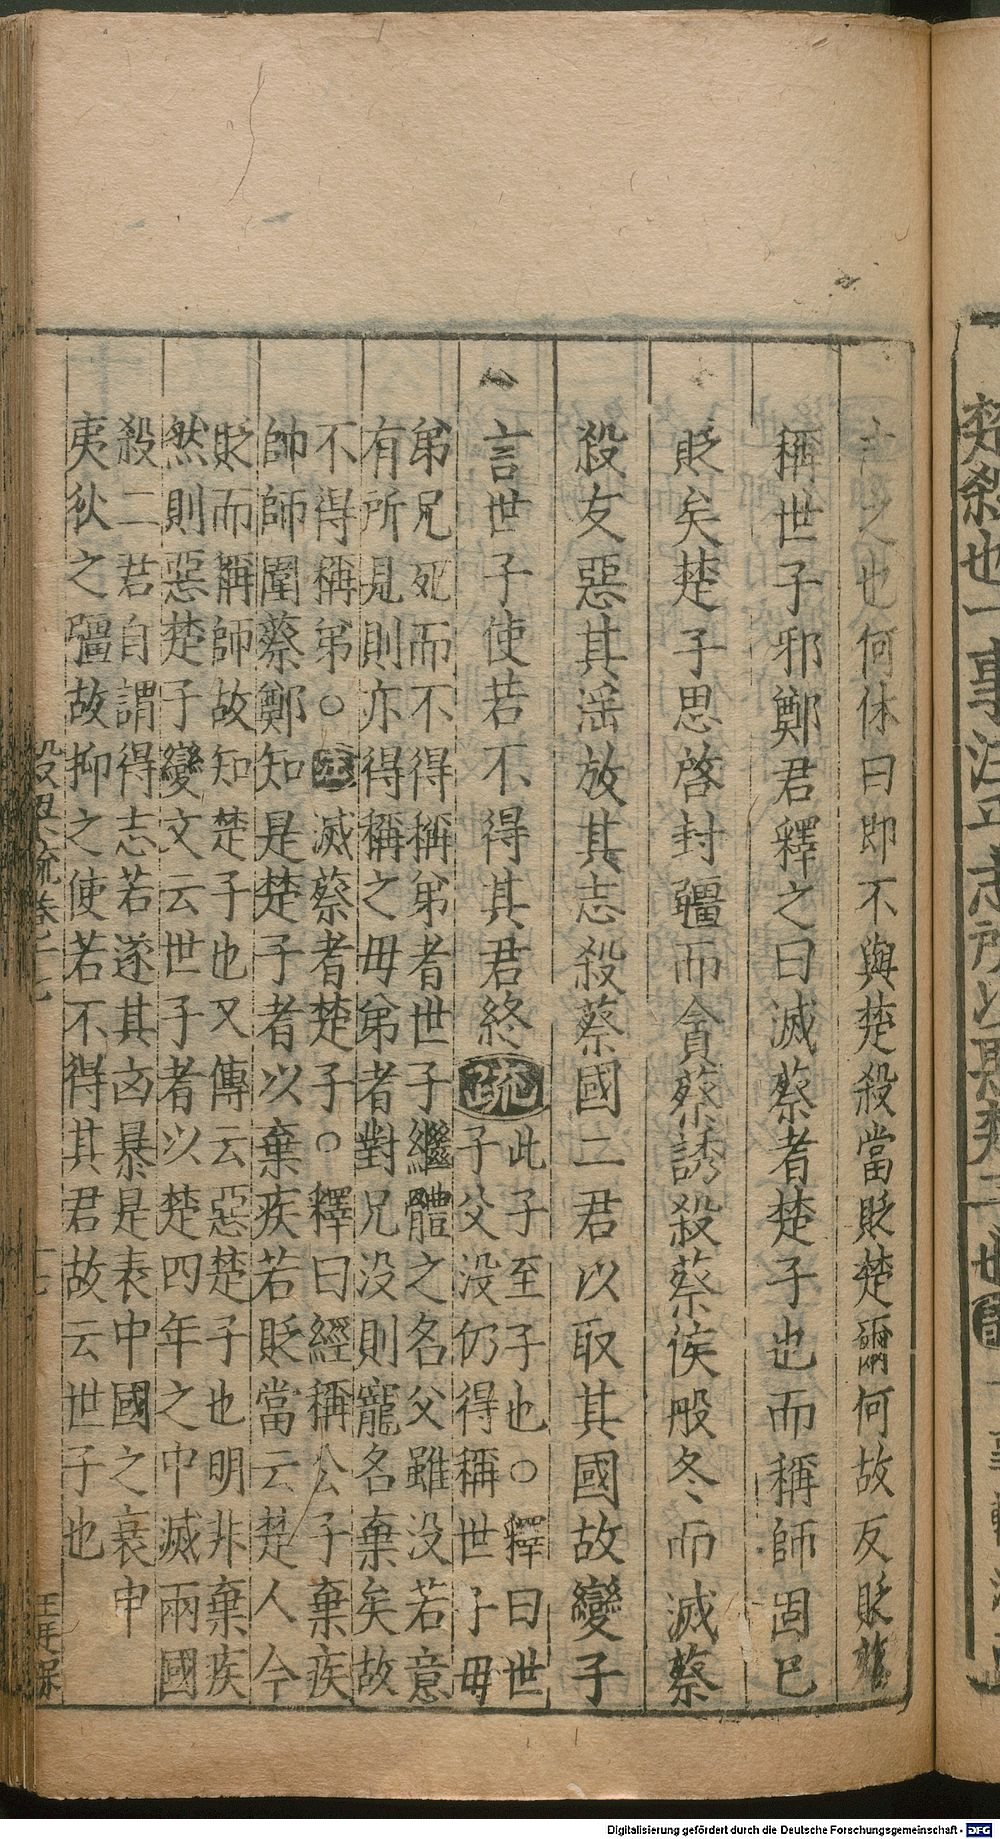 之也何休曰即不與楚殺當貶楚爾何故反貶蔡
稱世子邪鄭君釋之曰滅蔡者楚子也而稱師固巳
貶矣楚子思啓封疆而貪蔡誘殺蔡侯般冬而滅蔡
殺友惡其滛放其志殺蔡國二君以取其國故變子
言世子使若不得其君終
疏
此子至子也○釋曰世
子父没仍得稱世子母
弟兄死而不得稱弟者世子繼體之名父雖没若意
有所見則亦得稱之母弟者對兄没則寵名棄矣故
不得稱弟○注滅蔡者楚子○釋曰經稱公子棄疾
帥師圍蔡鄭知是楚子者以棄疾若貶當云楚人今
貶而稱師故知楚子也又傳云惡楚子也明非棄疾
然則惡楚子變文云世子者以楚四年之中滅兩國
殺二君自謂得志若遂其凶暴是表中國之衰申
夷狄之彊故抑之使若不得其君故云世子也
殺梁疏卷十七
十七
王再保
類殺也一事注乎志所以惡楚子也
Digitalisierung gefördert durch die Deutsche Forschungsgemeinschaft - DFG